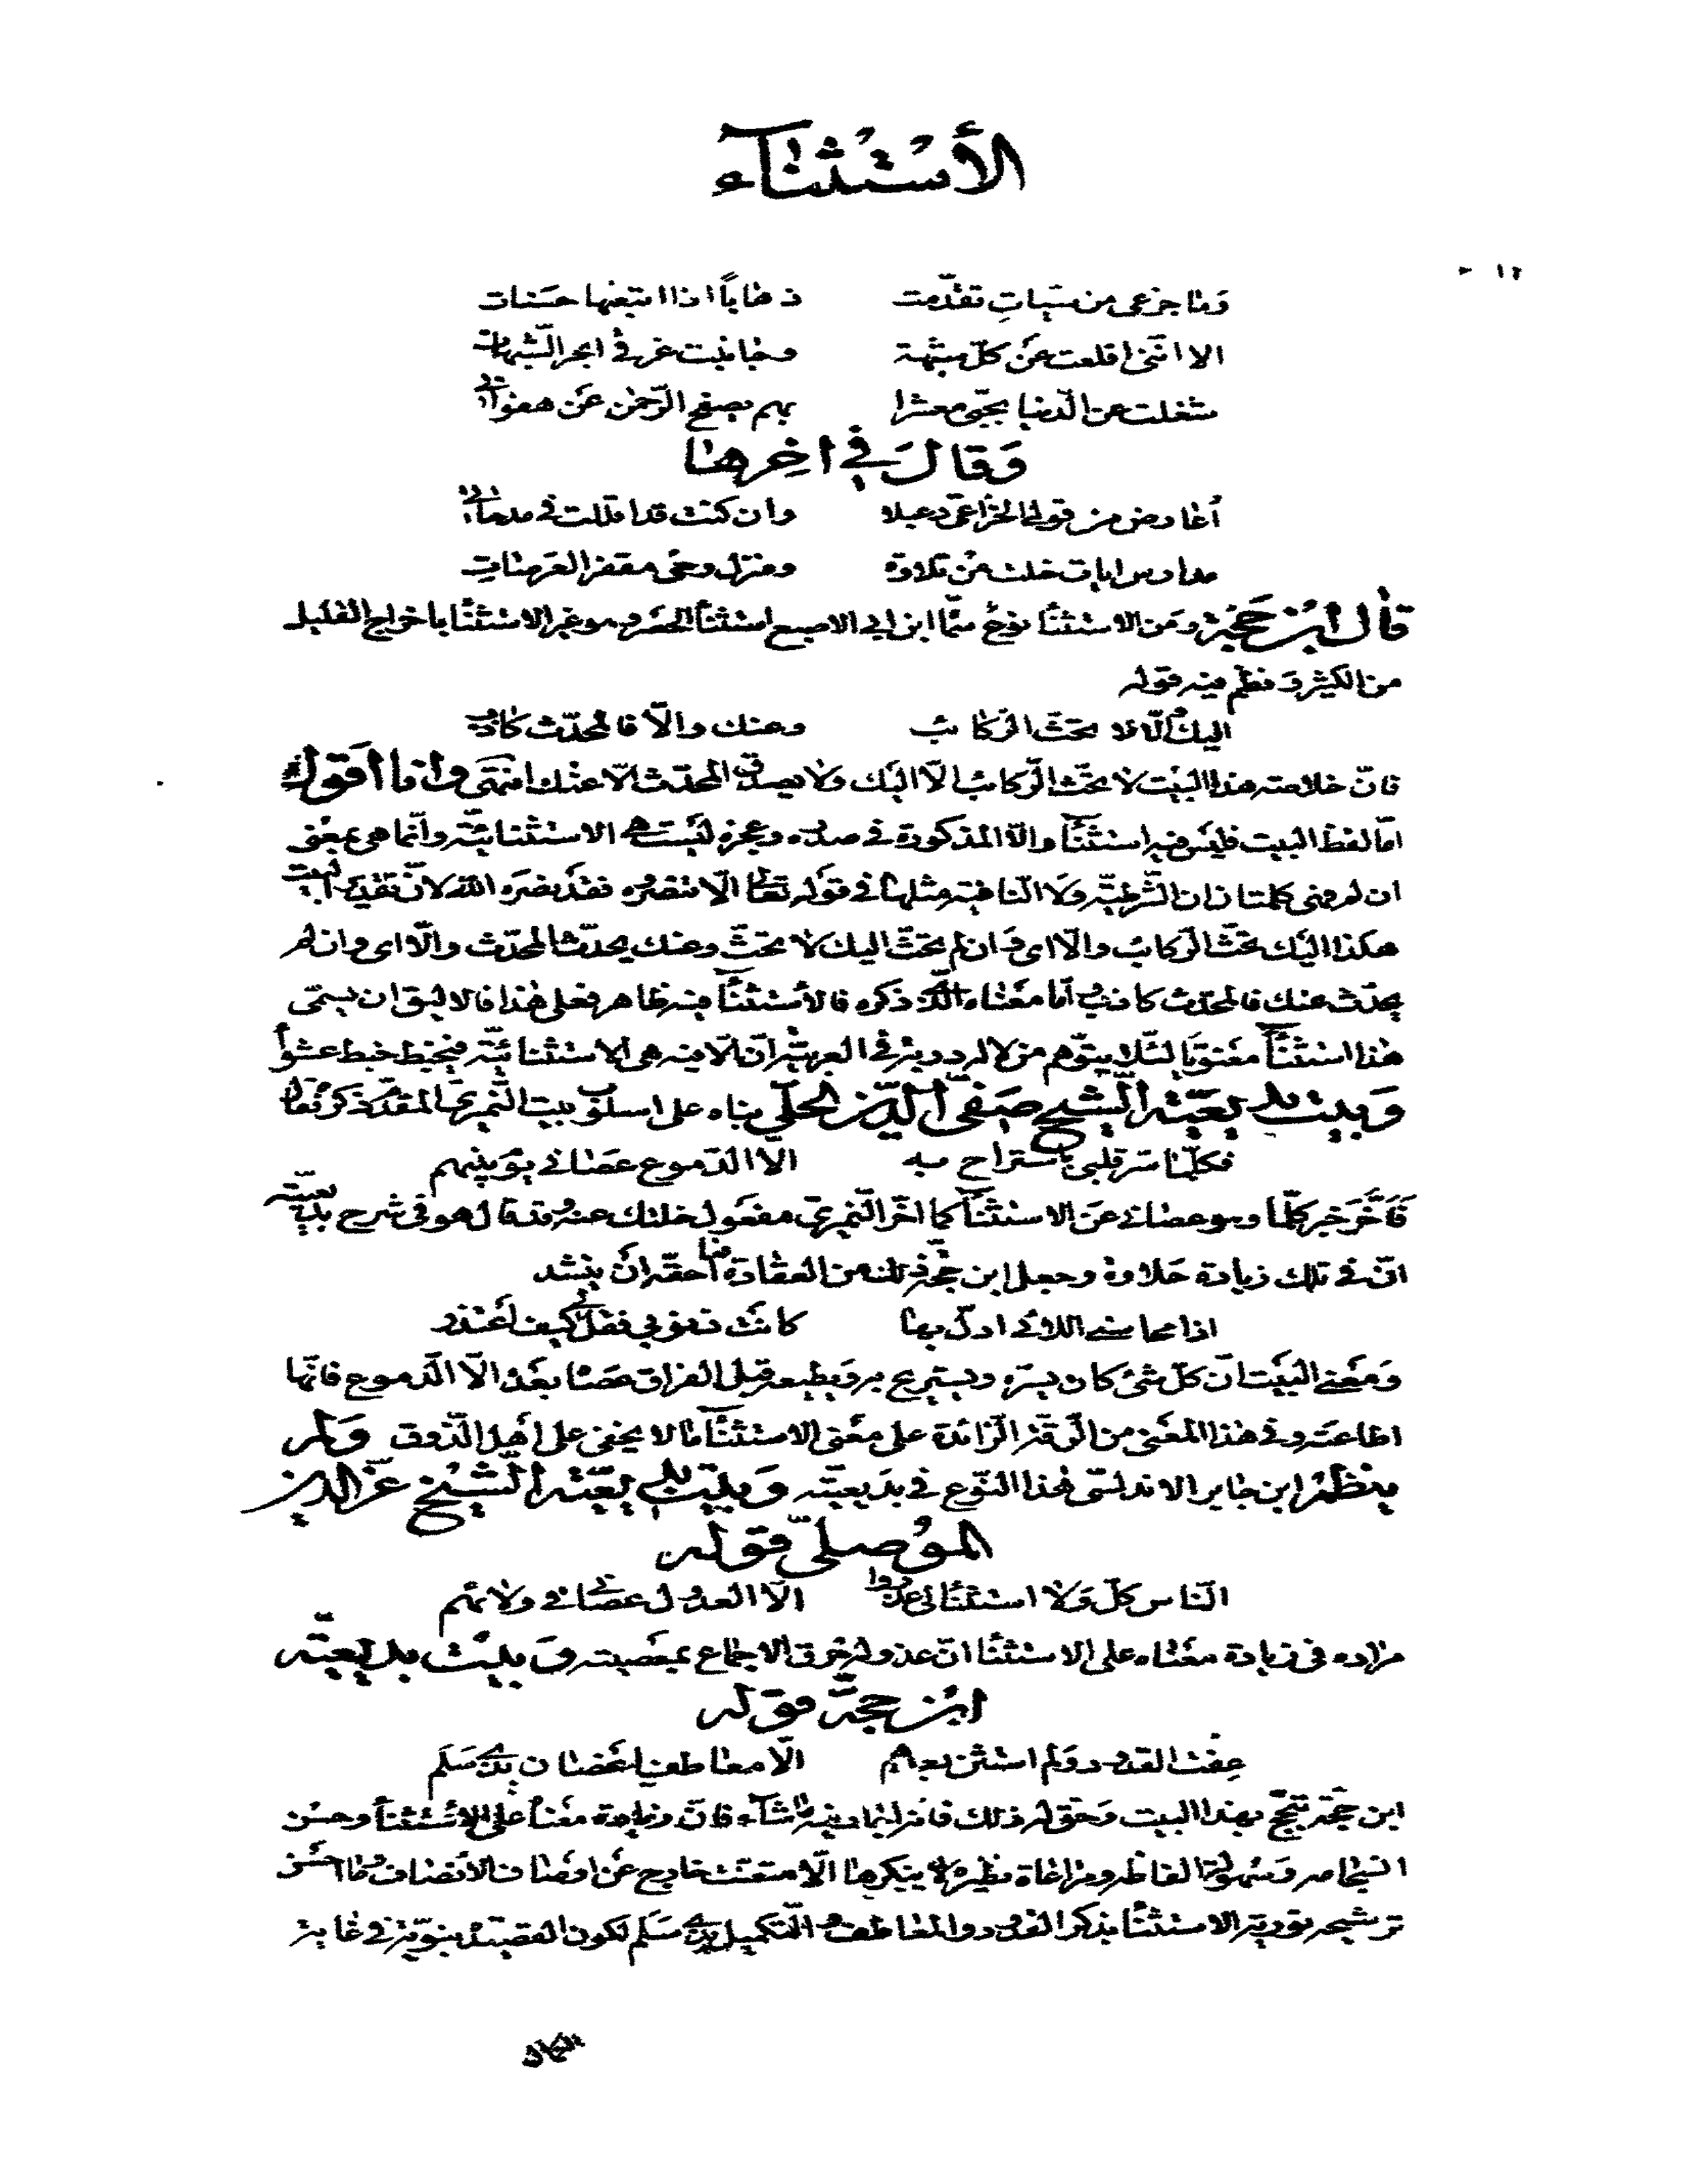 الأستثناء
وما جزعى من سيّاتِ تقدّمت ذهابًا اذا اتبعنها حسنات
الا انّنى اقلعت عن كلّ شبهة وجانبت غرقى ابحر الشّبهات
شغلت عن الدّنيا بحبّى معشرا بهم يصفح الرّحمٰن عن هفواتى
وَقالَ فِى اخِرها
أعارض من قول الخزاعىّ دعبلا وان كنت قد اقللت فى مدحاتى
مدارس ايات خلت من تلاوة ومنزل وحى مقفر العرصات
قال ابن حجّة ومن الاستثنا نوع سمّاه ابن ابى الاصبع استثنأ الحصر وهو غير الاستثنا باخراج القليل
من الكثير ونظم فيه قوله
اليك والّا لا تحثّ الركائب وعنك والّا فالمحدّث كاذب
فانّ خلاصته هذا البيت لا تحثّ الرّكائب الّا اليك ولا يصدق المحدّث الّا عنك انتهى وانا أقول
امّا لفظ البيت فليس فيه استثنأ والّا المذكورة فى صدره وعجزه ليست هى الاستثنائيّة وانّما هى بمعنى
ان لم وهى كلمتان ان الشّرطيّة ولا النافية مثلها فى قوله تعالى الّا تنصروه فقد نصره الله لانّ تقدير البيت
هكذا اليك تحثّ الرّكائب والّا اى وان لم تحثّ اليك لا تحثّ وعنك يحدّث المحدّث والّا اى وان لم
يحدّث عنك فالمحدّث كاذب أما معناه الّذى ذكره فالأستثنأ فيه ظاهر فعلى هٰذا فالاليق ان يسمّى
هٰذا استثنأ معنويّا لئلّا يتوّهم من لا له دربة فى العربيّة انّ الّا فيه هى الاستثنائيّة فيخبط خبط عشوأ
وَبيت بديعيّته الشيخ صفىّ الدّين الحلّى بناه على اسلوب بيت النّميرىّ المقدّم ذكره فقال
فكلّما سرّ قلبى واستراح به الّا الدّموع عصانى بعد بينهم
فأخّر خبر كلّما وهو عصانى عن الاستثنأ كما اخّر النميرىّ مفعول خلتك عنه وقد قال هو فى شرح بديعيّته
انّ فى تلك زيادة حلاوة وجعل ابن حجّة ذلك من العقادة فما احقّه ان ينشد
اذا محاسنى اللائى ادلّ بها كانت ذنوبى فقل لى كيف أعتذر
ومعنى البيت انّ كلّ شئ كان يسرّه ويستريح به ويطيعه قبل الفراق عصاه بعده الّا الدّموع فانّها
اطاعته وفى هٰذا المعنى من الرّقّة الزّائدة على معنى الاستثنأ ما لا يخفى على اهل الذّوق وَلم
ينظم ابن جابر الاندلسىّ هٰذا النّوع فى بديعيّته وَبيت بديعيّته الشّيخ عزّ الدين
الموصلىّ قوله
النّاس كلّ ولا استثنأ لى عذروا الّا العذول عصانى فى ولائهم
مراده فى زيادة معناه على الاستثنأ انّ عذوله خرق الاجماع بمعصيته وَبيت بديعيّته
ابن حجّة قوله
عِفت القدود ولم استثن بعدهم الّا معاطف اغصان بذى سَلَم
ابن حجّة تبجّح بهذا البيت وحقّ له ذلك فانّه اجاد فيه ما شآء فانّ زيادة معناه على الاستثنأ وحسن
انسجامه وسهولة الفاظه ومراعاة نظيره لا ينكرها الّا متعنّت خارج عن اوصاف الانصاف وما احسن
ترشيحه تورية الاستثنأ بذكر القدود والمعاطف والتّكميل بذى سَلَم لكون القصيدة نبويّة فى غاية
الكمال